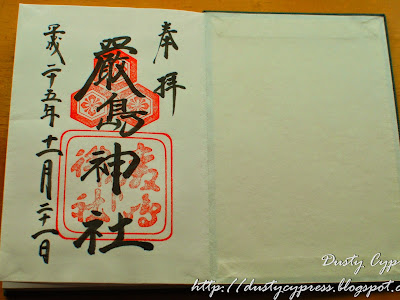 奉拝
嚴島神社
平成二十五年十一月二十一日
Dusty Cyp
http://dustycypress.blogspot.c